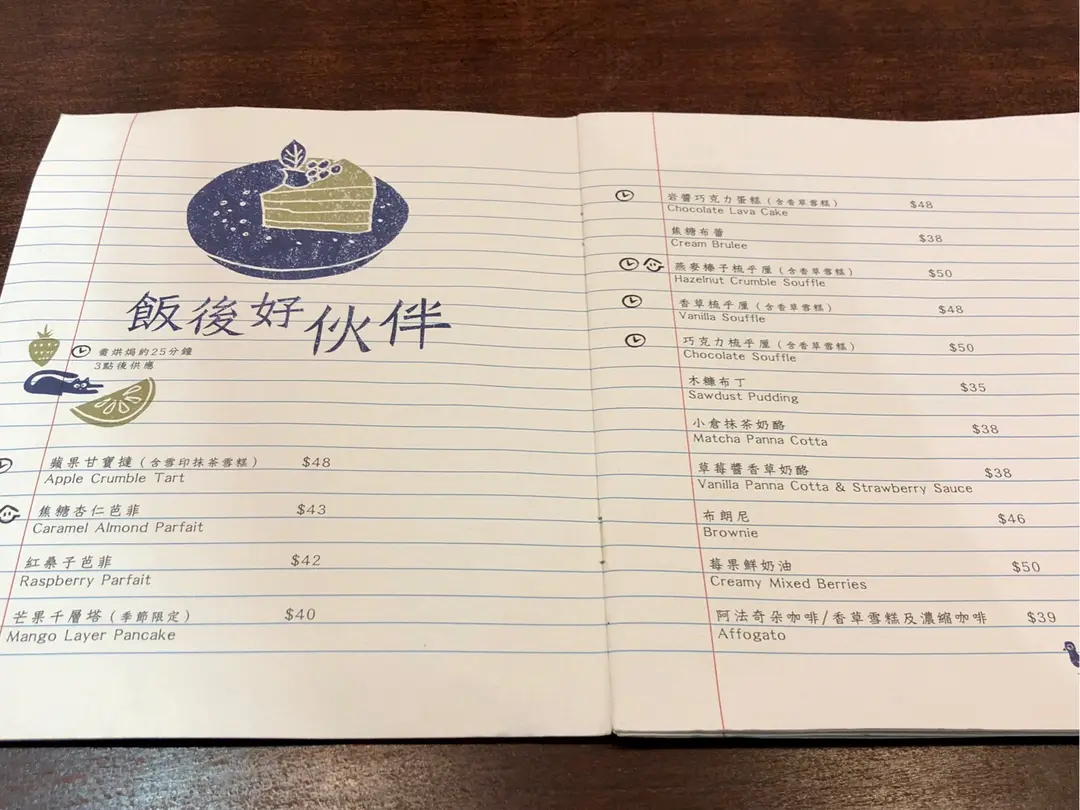 飯後好伙伴
需烘焗約25分鐘
3點後供應
蘋果甘寶撻（含雪印抹茶雪糕） $48
Apple Crumble Tart
焦糖杏仁芭菲 $43
Caramel Almond Parfait
紅桑子芭菲 $42
Raspberry Parfait
芒果千層塔（季節限定） $40
Mango Layer Pancake
岩醬巧克力蛋糕（含香草雪糕） $48
Chocolate Lava Cake
焦糖布蕾 $38
Cream Brulee
燕麥榛子梳乎厘（含香草雪糕） $50
Hazelnut Crumble Souffle
香草梳乎厘（含香草雪糕） $48
Vanilla Souffle
巧克力梳乎厘（含香草雪糕） $50
Chocolate Souffle
木糠布丁 $35
Sawdust Pudding
小倉抹茶奶酪 $38
Matcha Panna Cotta
草莓醬香草奶酪 $38
Vanilla Panna Cotta & Strawberry Sauce
布朗尼 $46
Brownie
莓果鮮奶油 $50
Creamy Mixed Berries
阿法奇朵咖啡/香草雪糕及濃縮咖啡 $39
Affogato